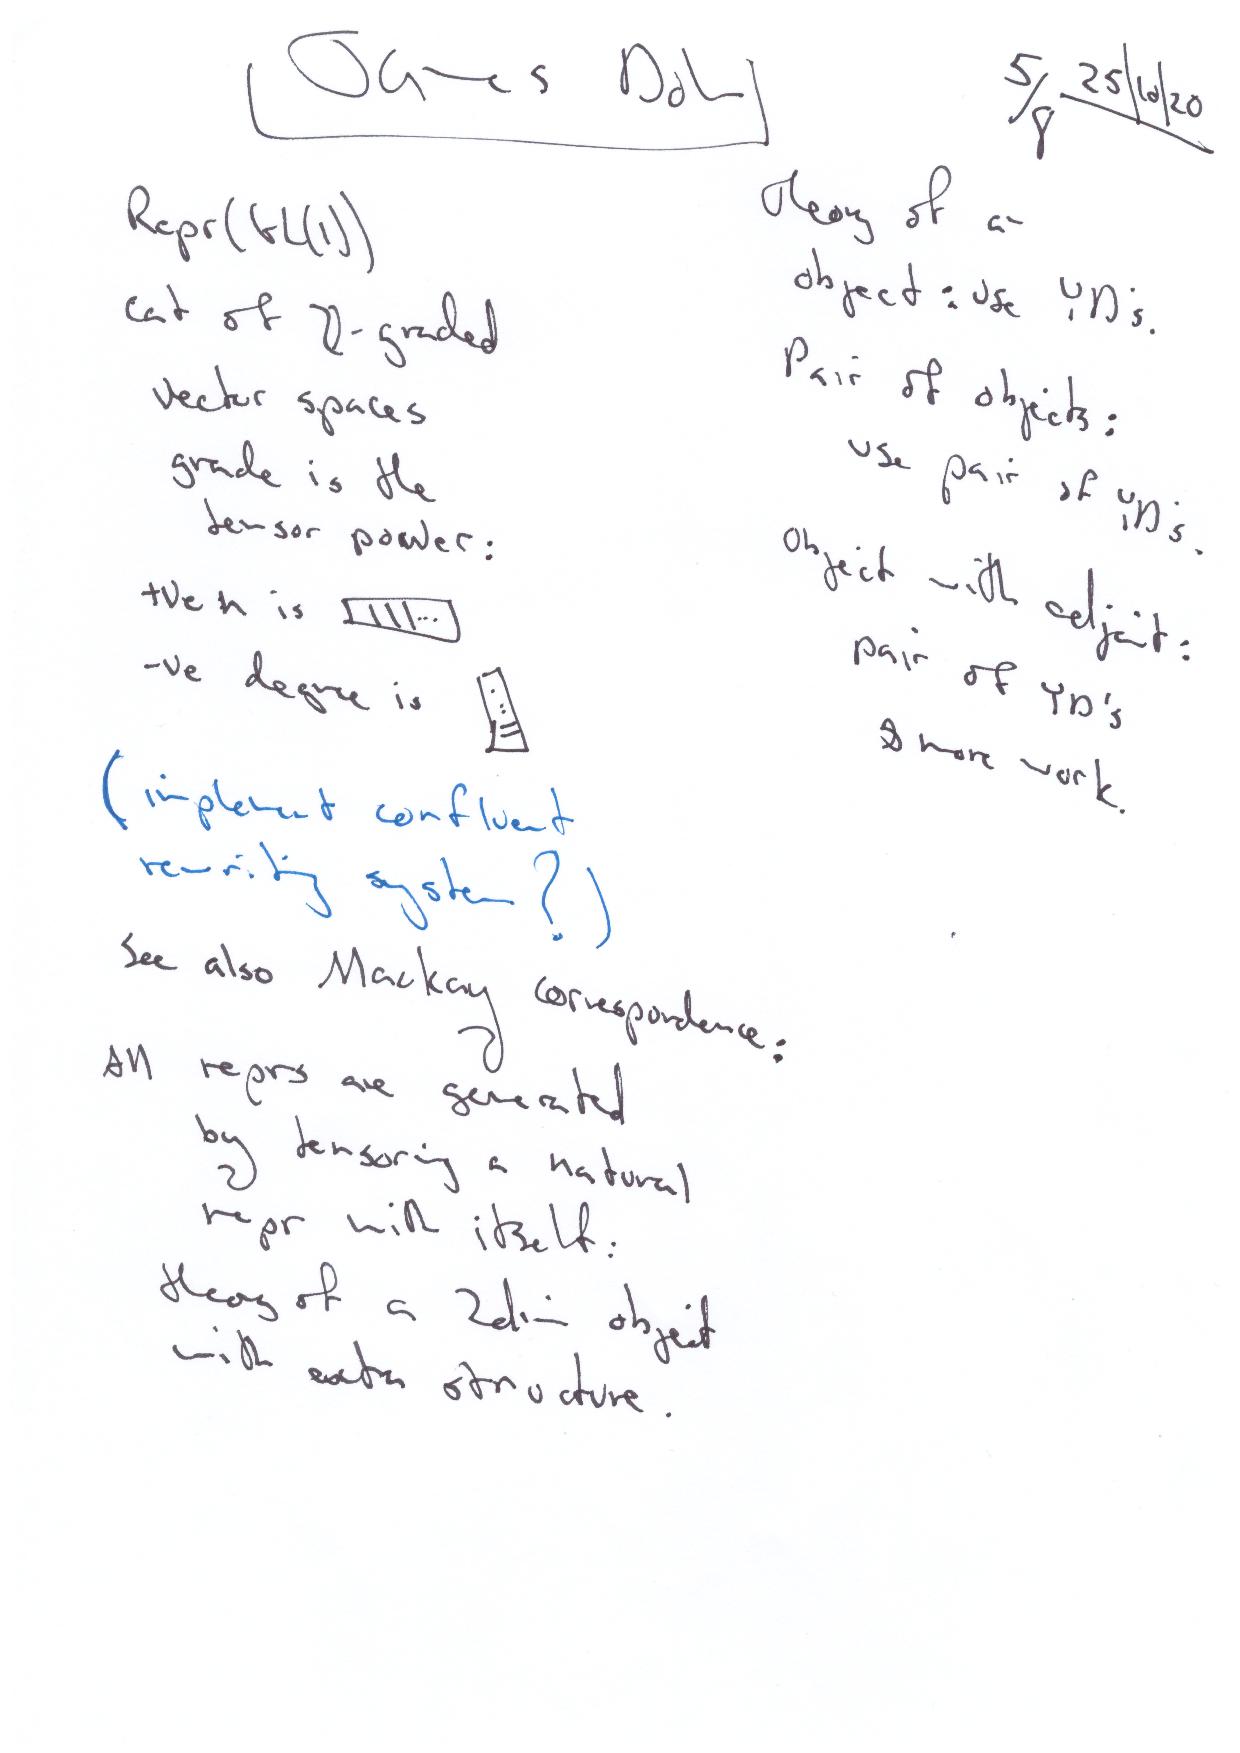 James Dol
5/8 25/10/20
Repr(GL(1))
cat of ℤ-graded
vector spaces
grade is the
tensor power:
+ve n is
-ve degree is
(implement confluent
rewriting system?)
See also Mackay correspondence:
All reprs are generated
by tensoring a natural
repr with itself:
theory of a 2dim object
with extra structure.
theory of a
object: use YD's.
Pair of objects:
use pair of YD's.
Object with adjoint:
pair of YD's
& more work.